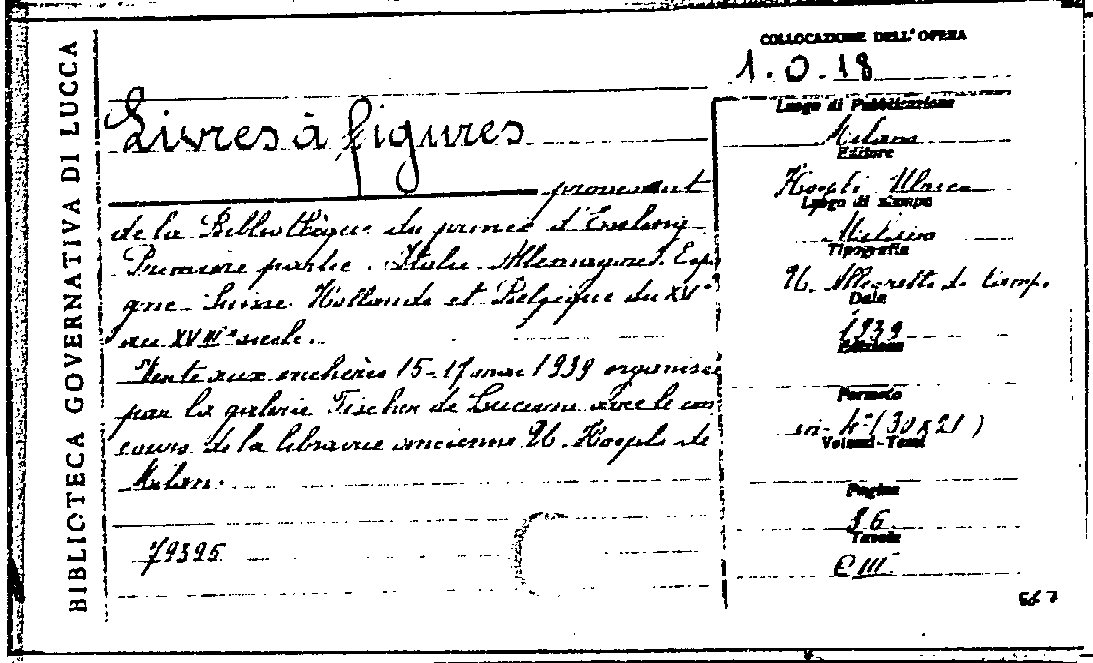 BIBLIOTECA GOVERNATIVA DI LUCCA
COLLOCAZIONE DELL'OPERA
1.0.18
Livres à figures
provenant
de la Bibliothèque du prince d'Essling
Première partie. Italie Allemagne. Espa
gne Suisse Hollande et Belgique du XVe
au XVIIIe siècle.
Vente aux enchères 15-17 mai 1939 organisée
par la galerie Fischer de Lucerne avec le con
cours de la librairie ancienne U. Hoepli de
Milan.
79395
Luogo di Pubblicazione
Milano
Editore
Hoepli Ulrico
Luogo di stampa
Milano
Tipografia
U. Allegretti di Camp.
Data
1939
Edizione
Formato
in-4° (30x21)
Volumi-Tomi
Pagine
86
Tavole
CIII